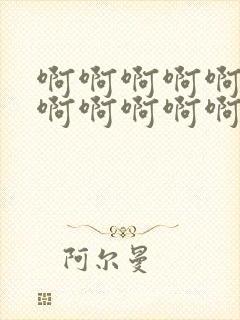 啊啊啊啊啊
啊啊啊啊啊
阿尔曼